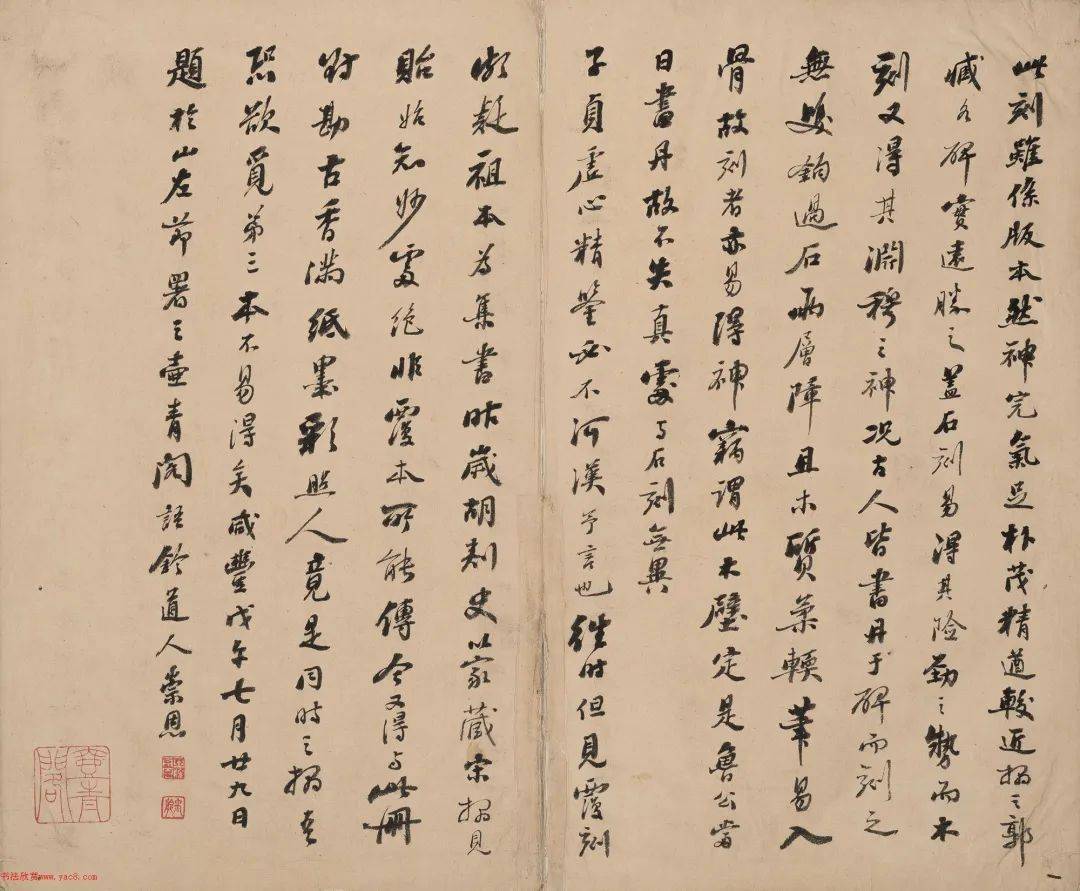 此刻雖係版本然神完氣足朴茂精遒較近搨之郭
臧各碑實遠勝之蓋石刻易得其險勁之勢而木
刻又得其淵穆之神況古人皆書丹于碑而刻之
無雙鉤過石兩層障且木質柔輭筆易入
骨故刻者亦易得神竊謂此木壁定是魯公當
日書丹故不失真處與石刻無異
子貞虛心精鑒必不河漢予言也往時但見覆刻
嘗疑祖本為集書昨歲胡刺史以家藏宋搨見
貽始知妙處絕非覆本所能傳今又得與此冊
對勘古香滿紙墨彩照人竟是同時之搨者
恐欲覓第三本不易得矣咸豐戊午七月廿九日
題於山左節署之壺青閣語鈴道人崇恩
书法欣赏www.yac8.com